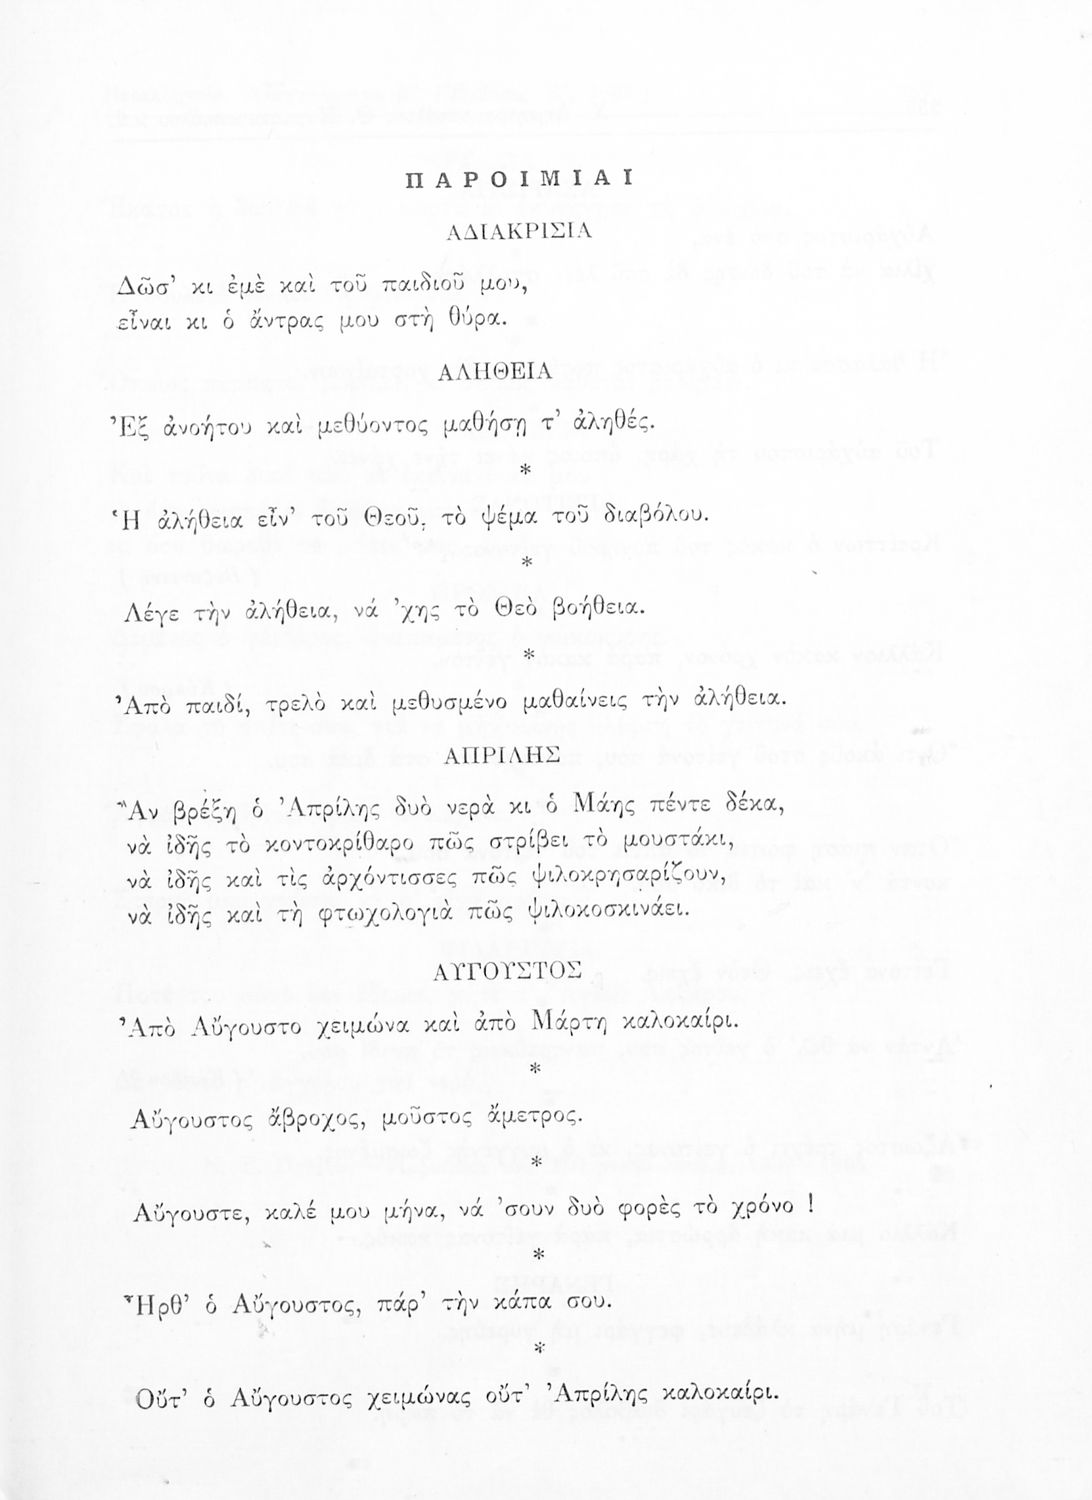 ΠΑΡΟΙΜΙΑΙ
ΑΔΙΑΚΡΙΣΙΑ
Δῶσ' κι ἐμὲ καὶ τοῦ παιδιοῦ μου,
εἶναι κι ὁ ἄντρας μου στὴ θύρα.
ΑΛΗΘΕΙΑ
Ἐξ ἀνοήτου καὶ μεθύοντος μαθήσῃ τ' ἀληθές.
*
Ἡ ἀλήθεια εἶν' τοῦ Θεοῦ, τὸ ψέμα τοῦ διαβόλου.
*
Λέγε τὴν ἀλήθεια, νά 'χης τὸ Θεὸ βοήθεια.
*
Ἀπὸ παιδί, τρελὸ καὶ μεθυσμένο μαθαίνεις τὴν ἀλήθεια.
ΑΠΡΙΛΗΣ
Ἂν βρέξη ὁ Ἀπρίλης δυὸ νερὰ κι ὁ Μάης πέντε δέκα,
νὰ ἰδῆς τὸ κοντοκρίθαρο πῶς στρίβει τὸ μουστάκι,
νὰ ἰδῆς καὶ τὶς ἀρχόντισσες πῶς ψιλοκρησαρίζουν,
νὰ ἰδῆς καὶ τὴ φτωχολογιὰ πῶς ψιλοκοσκινάει.
ΑΥΓΟΥΣΤΟΣ
Ἀπὸ Αὔγουστο χειμώνα καὶ ἀπὸ Μάρτη καλοκαίρι.
*
Αὔγουστος ἄβροχος, μοῦστος ἄμετρος.
*
Αὔγουστε, καλέ μου μήνα, νά 'σουν δυὸ φορὲς τὸ χρόνο !
*
Ἦρθ' ὁ Αὔγουστος, πάρ' τὴν κάπα σου.
*
Οὔτ' ὁ Αὔγουστος χειμώνας οὔτ' Ἀπρίλης καλοκαίρι.